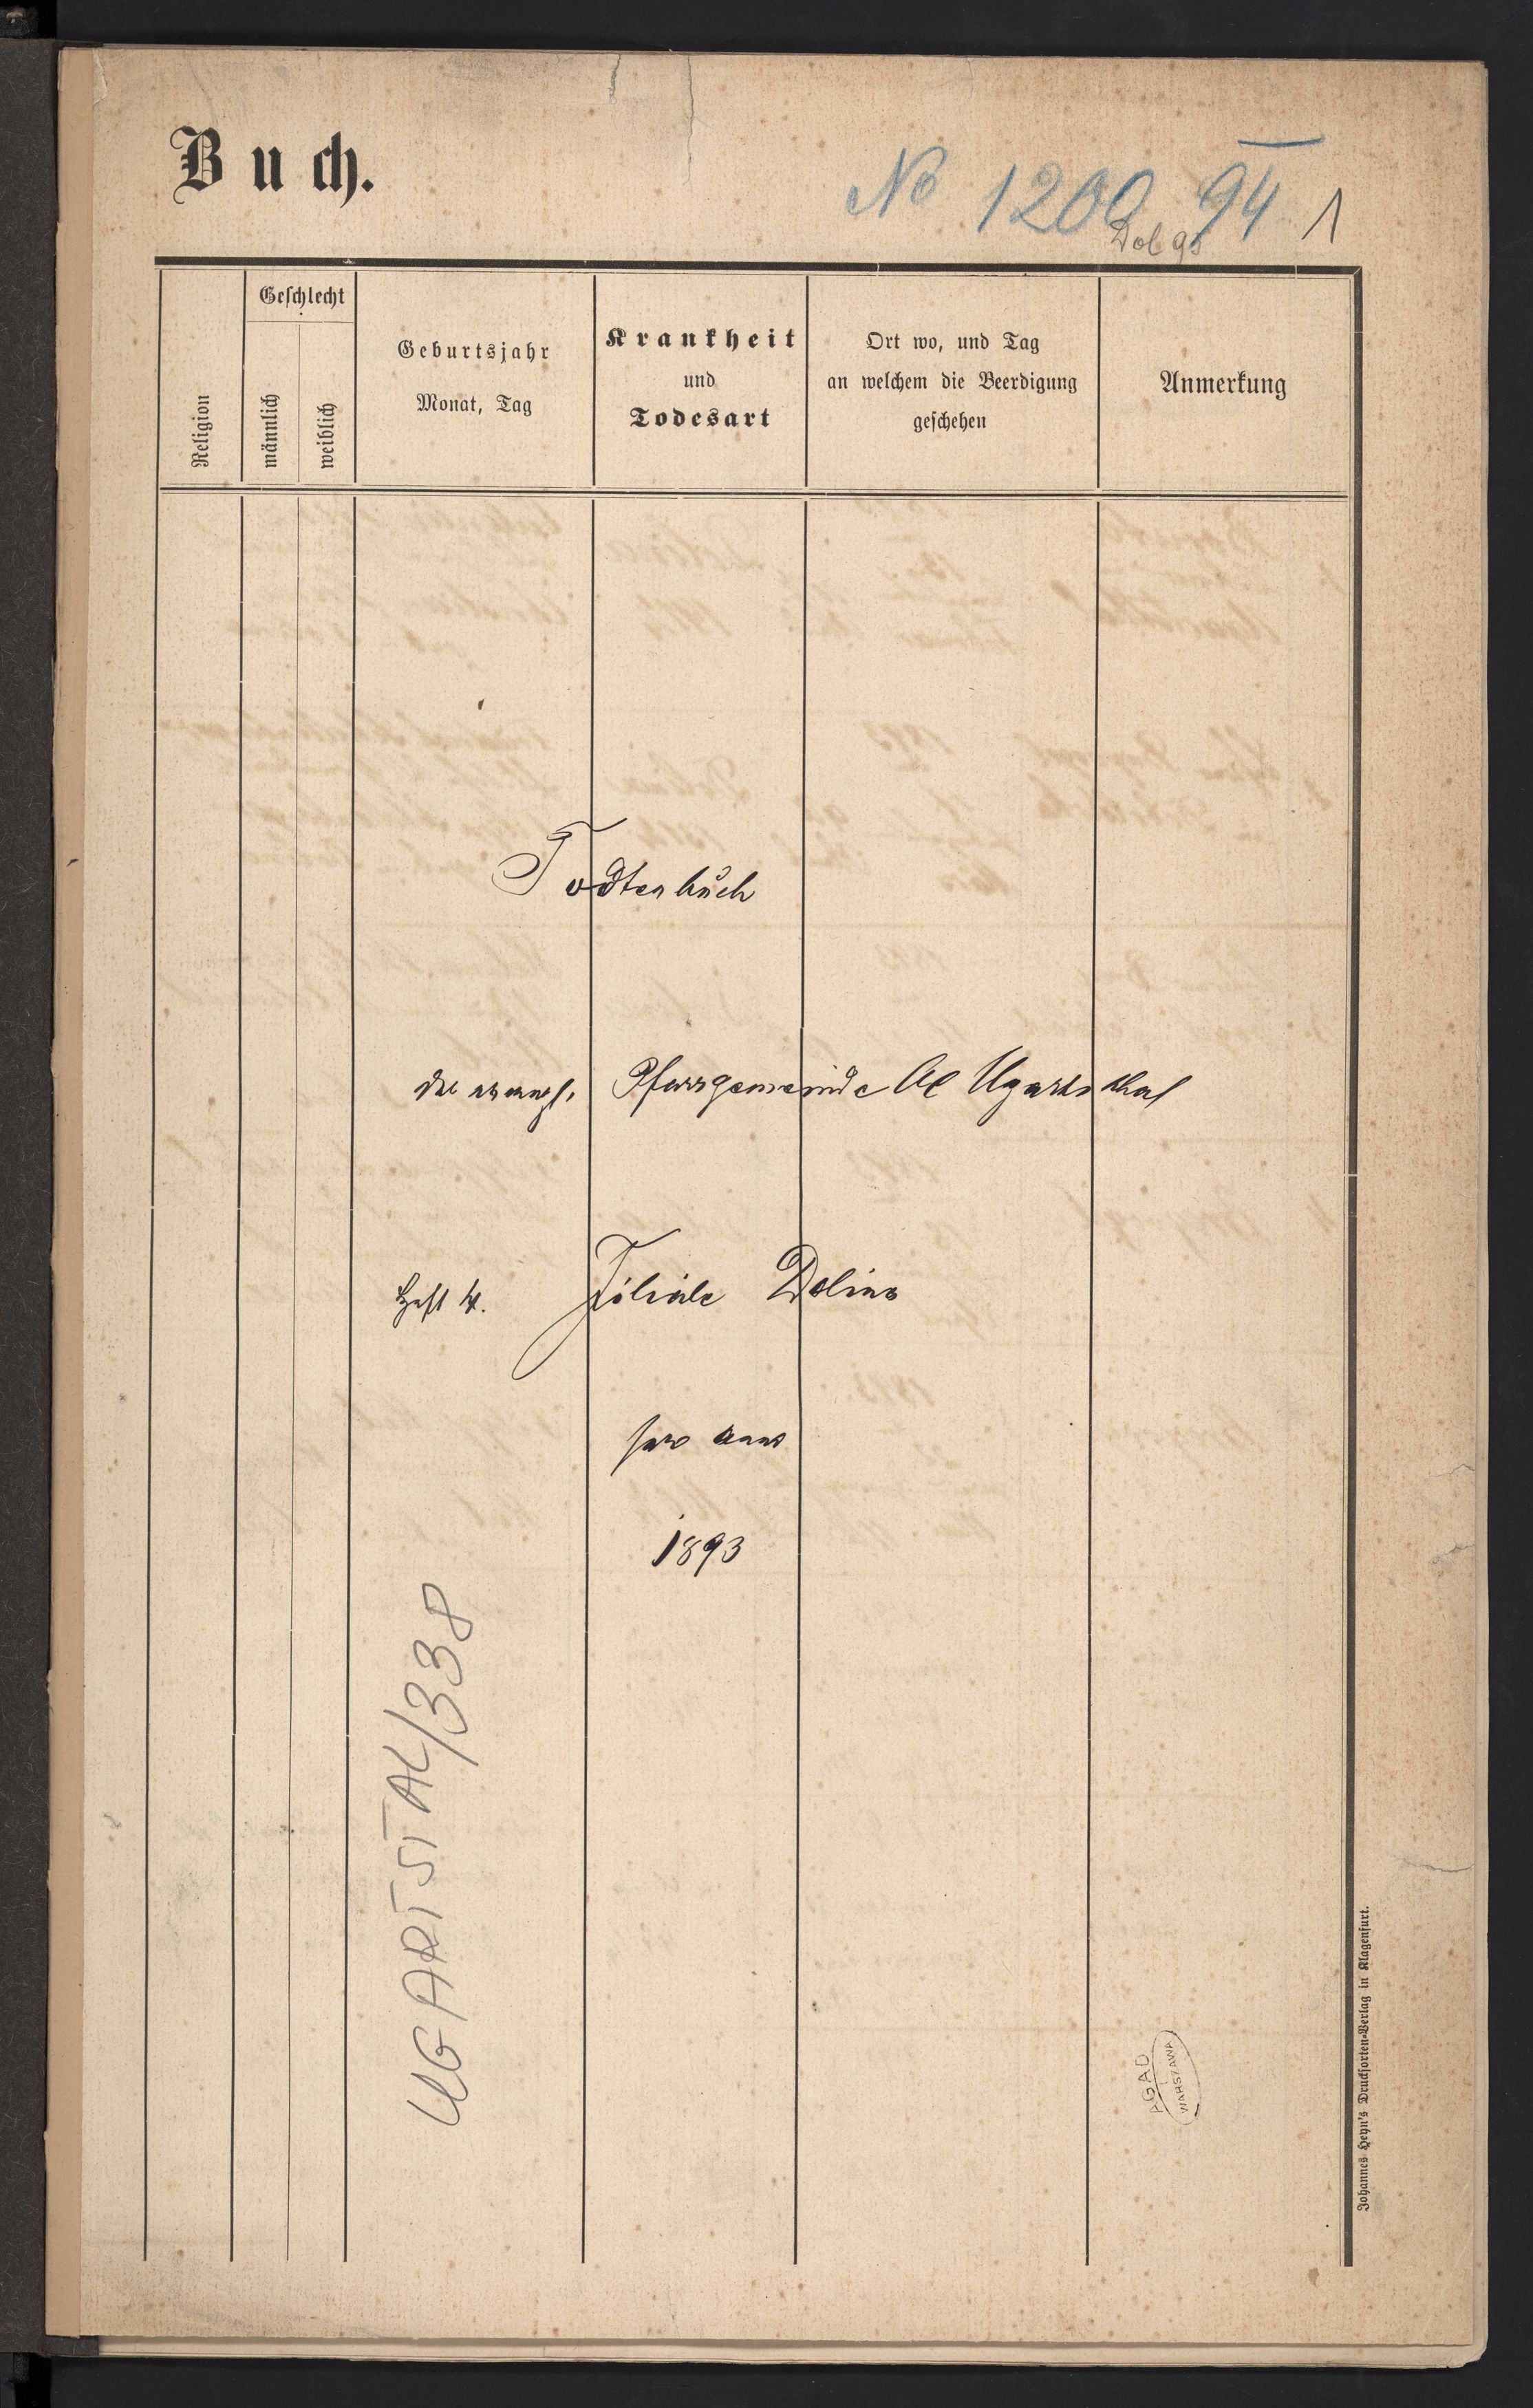 Buch.
No 1200 94 1
Dol 93
Religion
Geschlecht
männlich
weiblich
Geburtsjahr
Monat, Tag
Krankheit
und
Todesart
Ort wo, und Tag
an welchem die Beerdigung
geschehen
Anmerkung
Todtenbuch
der evangl. Pfarrgemeinde AC Ugartsthal
Heft 4. Filiale Dolina
pro anno
1893
UGARTSTAL/338
AGAD
WARSZAWA
Johannes Heyn's Drucksorten-Verlag in Klagenfurt.